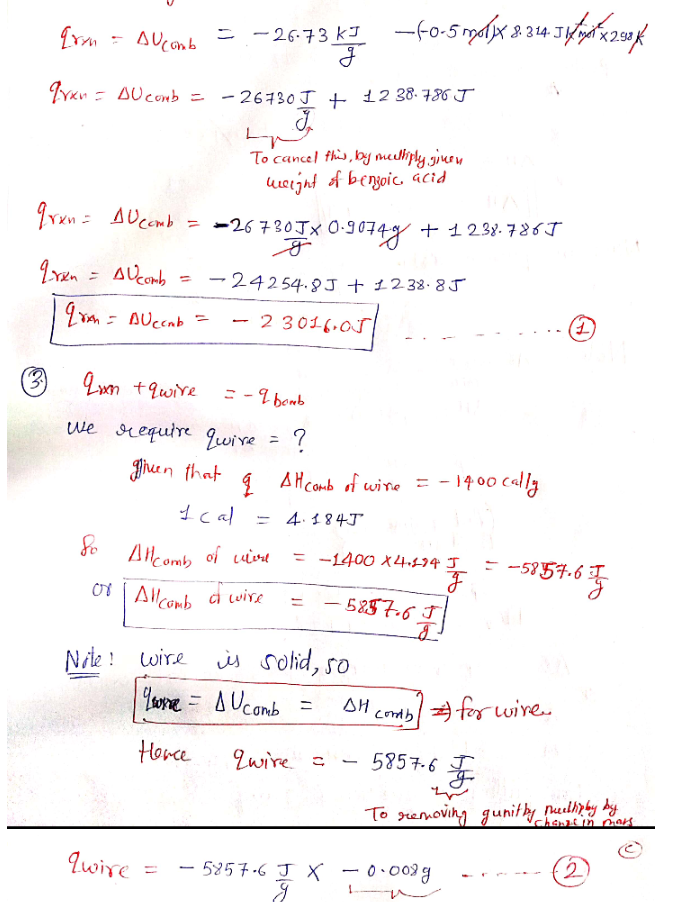 q rxn = ΔU comb = -26.73 kJ/g - (-0.5 mol) × 8.314 J K⁻¹ mol⁻¹ × 298 K
q rxn = ΔU comb = -26730 J/g + 1238.786 J
To cancel this, by multiply given
weight of benzoic acid
q rxn = ΔU comb = -26730 J/g × 0.9074 g + 1238.786 J
q rxn = ΔU comb = -24254.8 J + 1238.8 J
q rxn = ΔU comb = - 23016.0 J ------- ①
③ q rxn + q wire = - q bomb
we require q wire = ?
given that q ΔH comb of wire = -1400 cal/g
1 cal = 4.184 J
So ΔH comb of wire = -1400 × 4.184 J/g = -5857.6 J/g
or ΔH comb of wire = - 5857.6 J/g
Note: wire is solid, so
q wire = ΔU comb = ΔH comb ⇒ for wire
Hence q wire = - 5857.6 J/g
To removing g unit by multiply by
change in mass
q wire = - 5857.6 J/g × - 0.008 g ------- ②